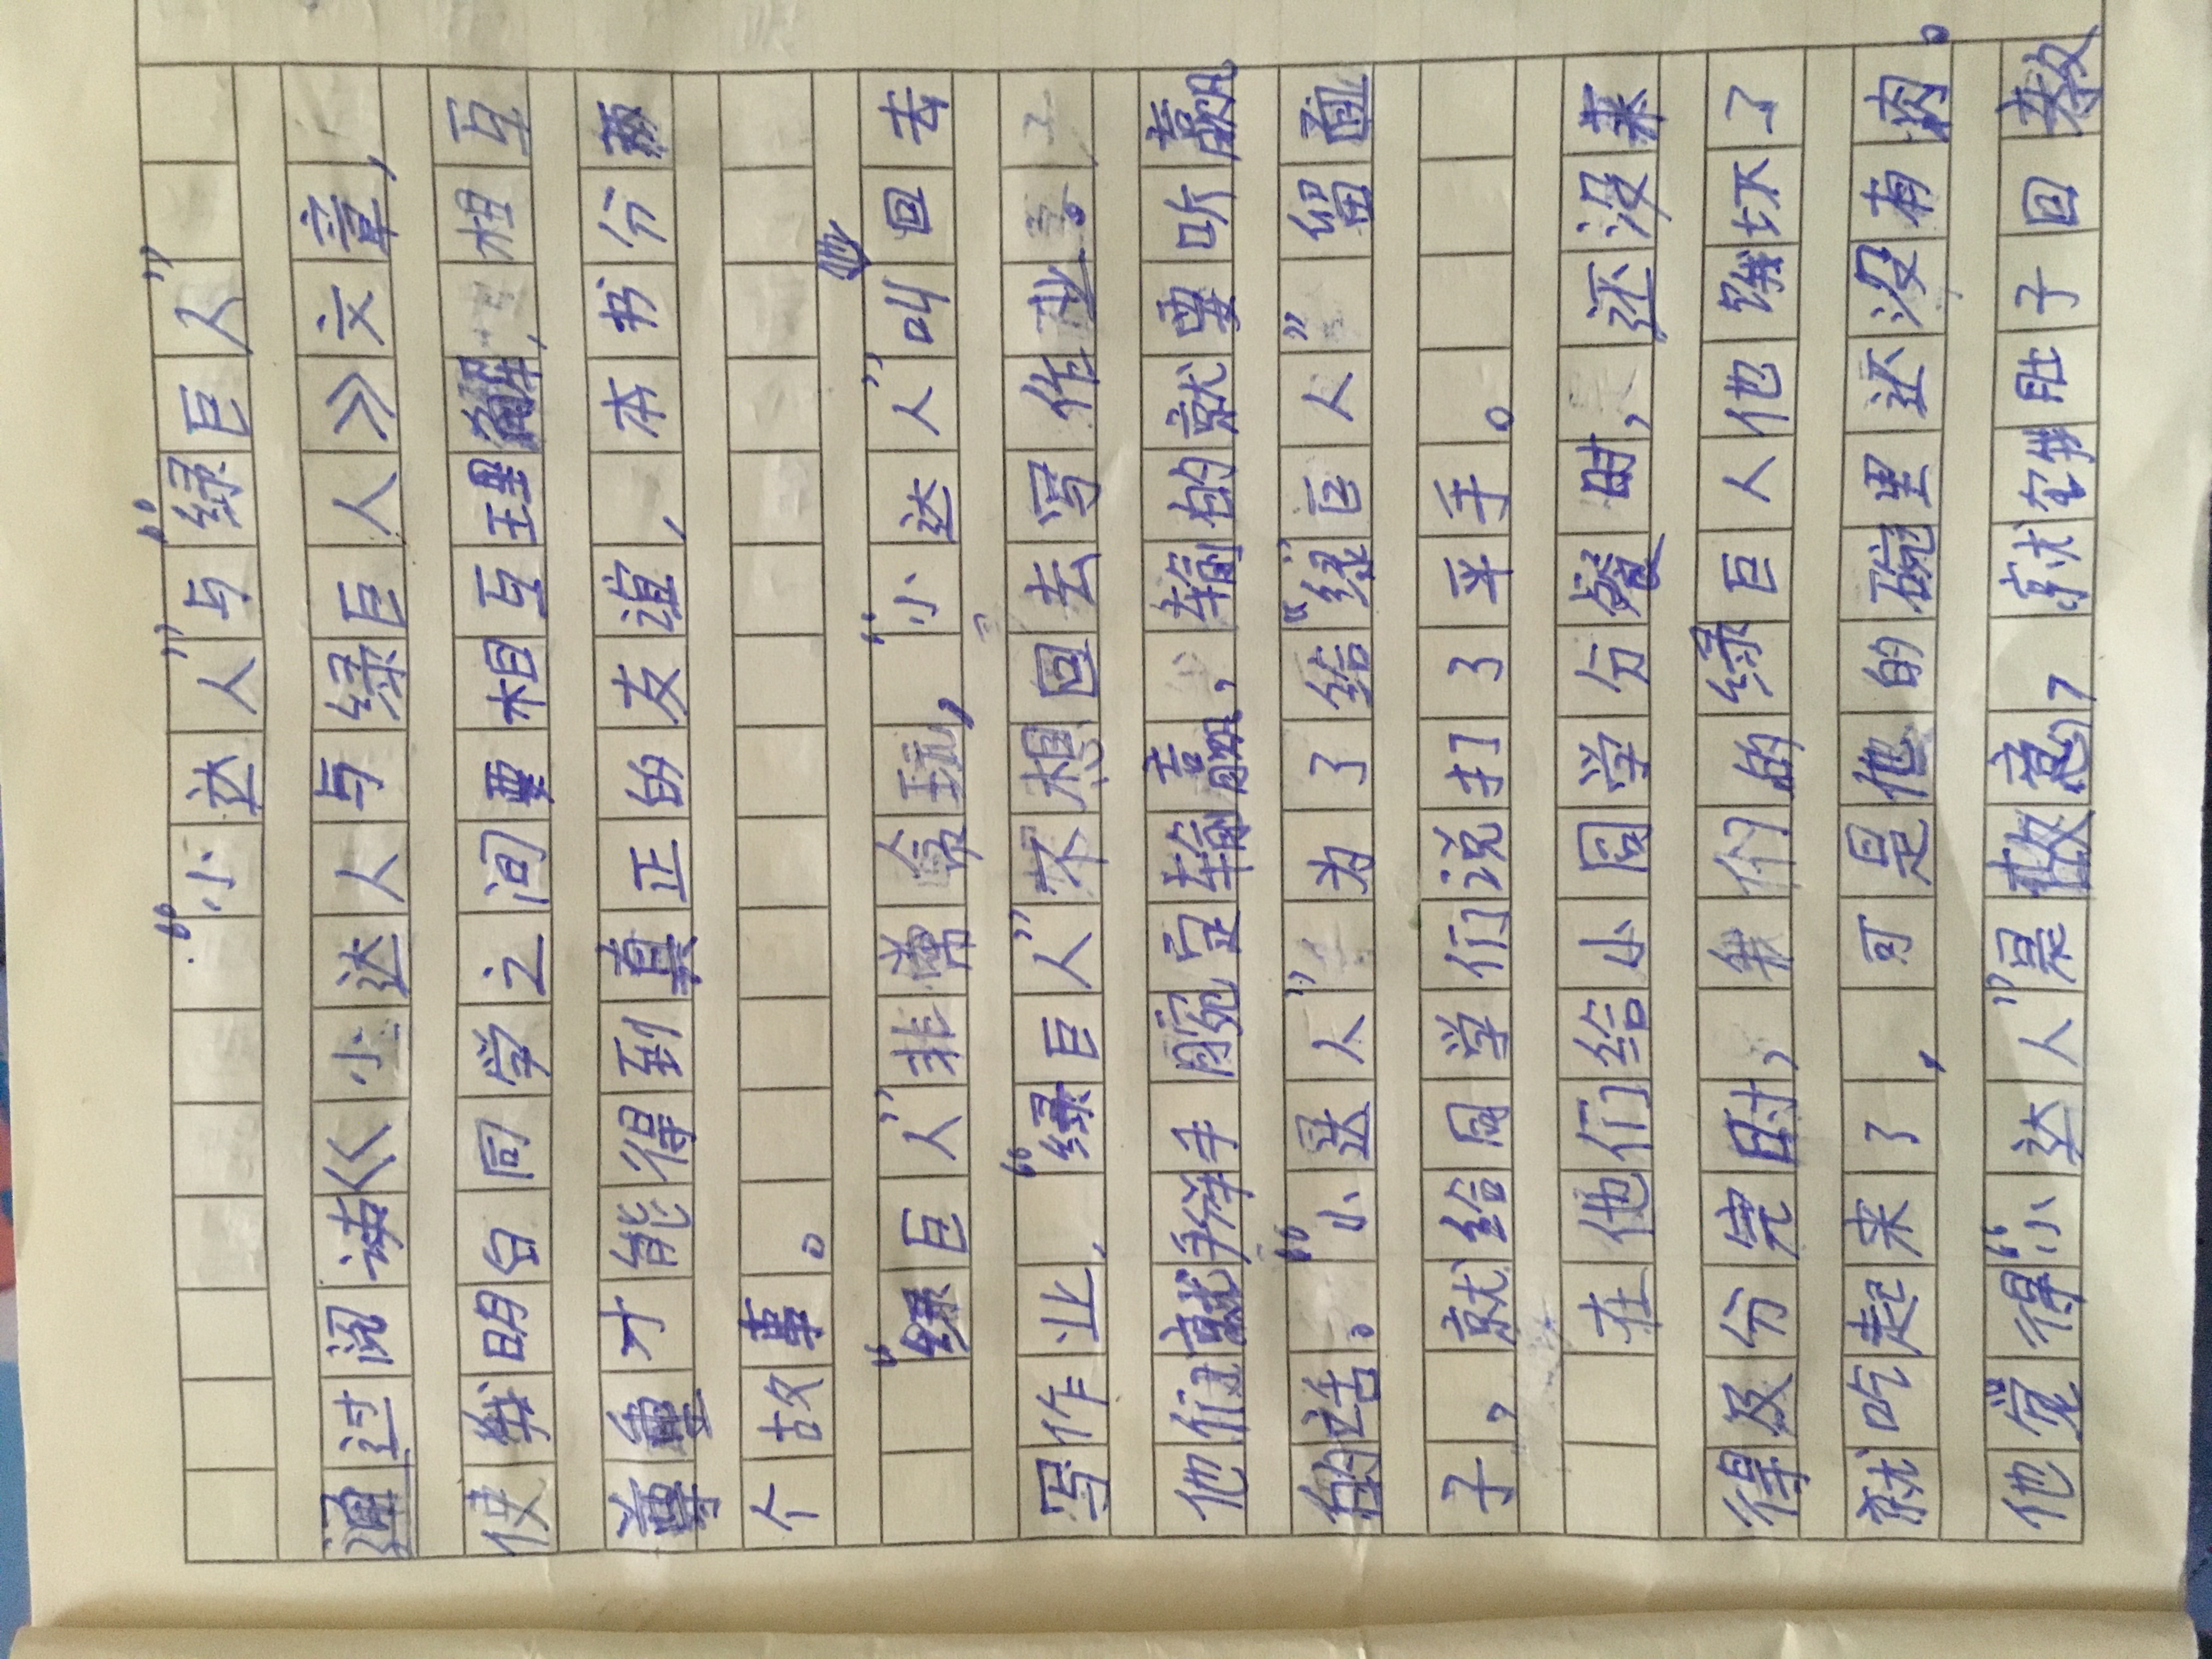 “小达人”与“绿巨人”
通过阅读《小达人与绿巨人》文章，
使我明白同学之间要相互理解，相互
尊重才能得到真正的友谊，本书分
个故事。
“绿巨人”非常贪玩，“小达人”叫回去
写作业，“绿巨人”不想回去写作业。
他们就掰手腕定输赢，输的就要听赢
的话。“小达人”为了给“绿巨人”留面
子，就给同学们说打了平手。
在他们给小同学分餐时，还没来
得及分完时，我们的绿巨人他饿坏了
就吃起来了，可是他的碗里还没有肉。
他觉得“小达人”是故意，就空着肚子回教